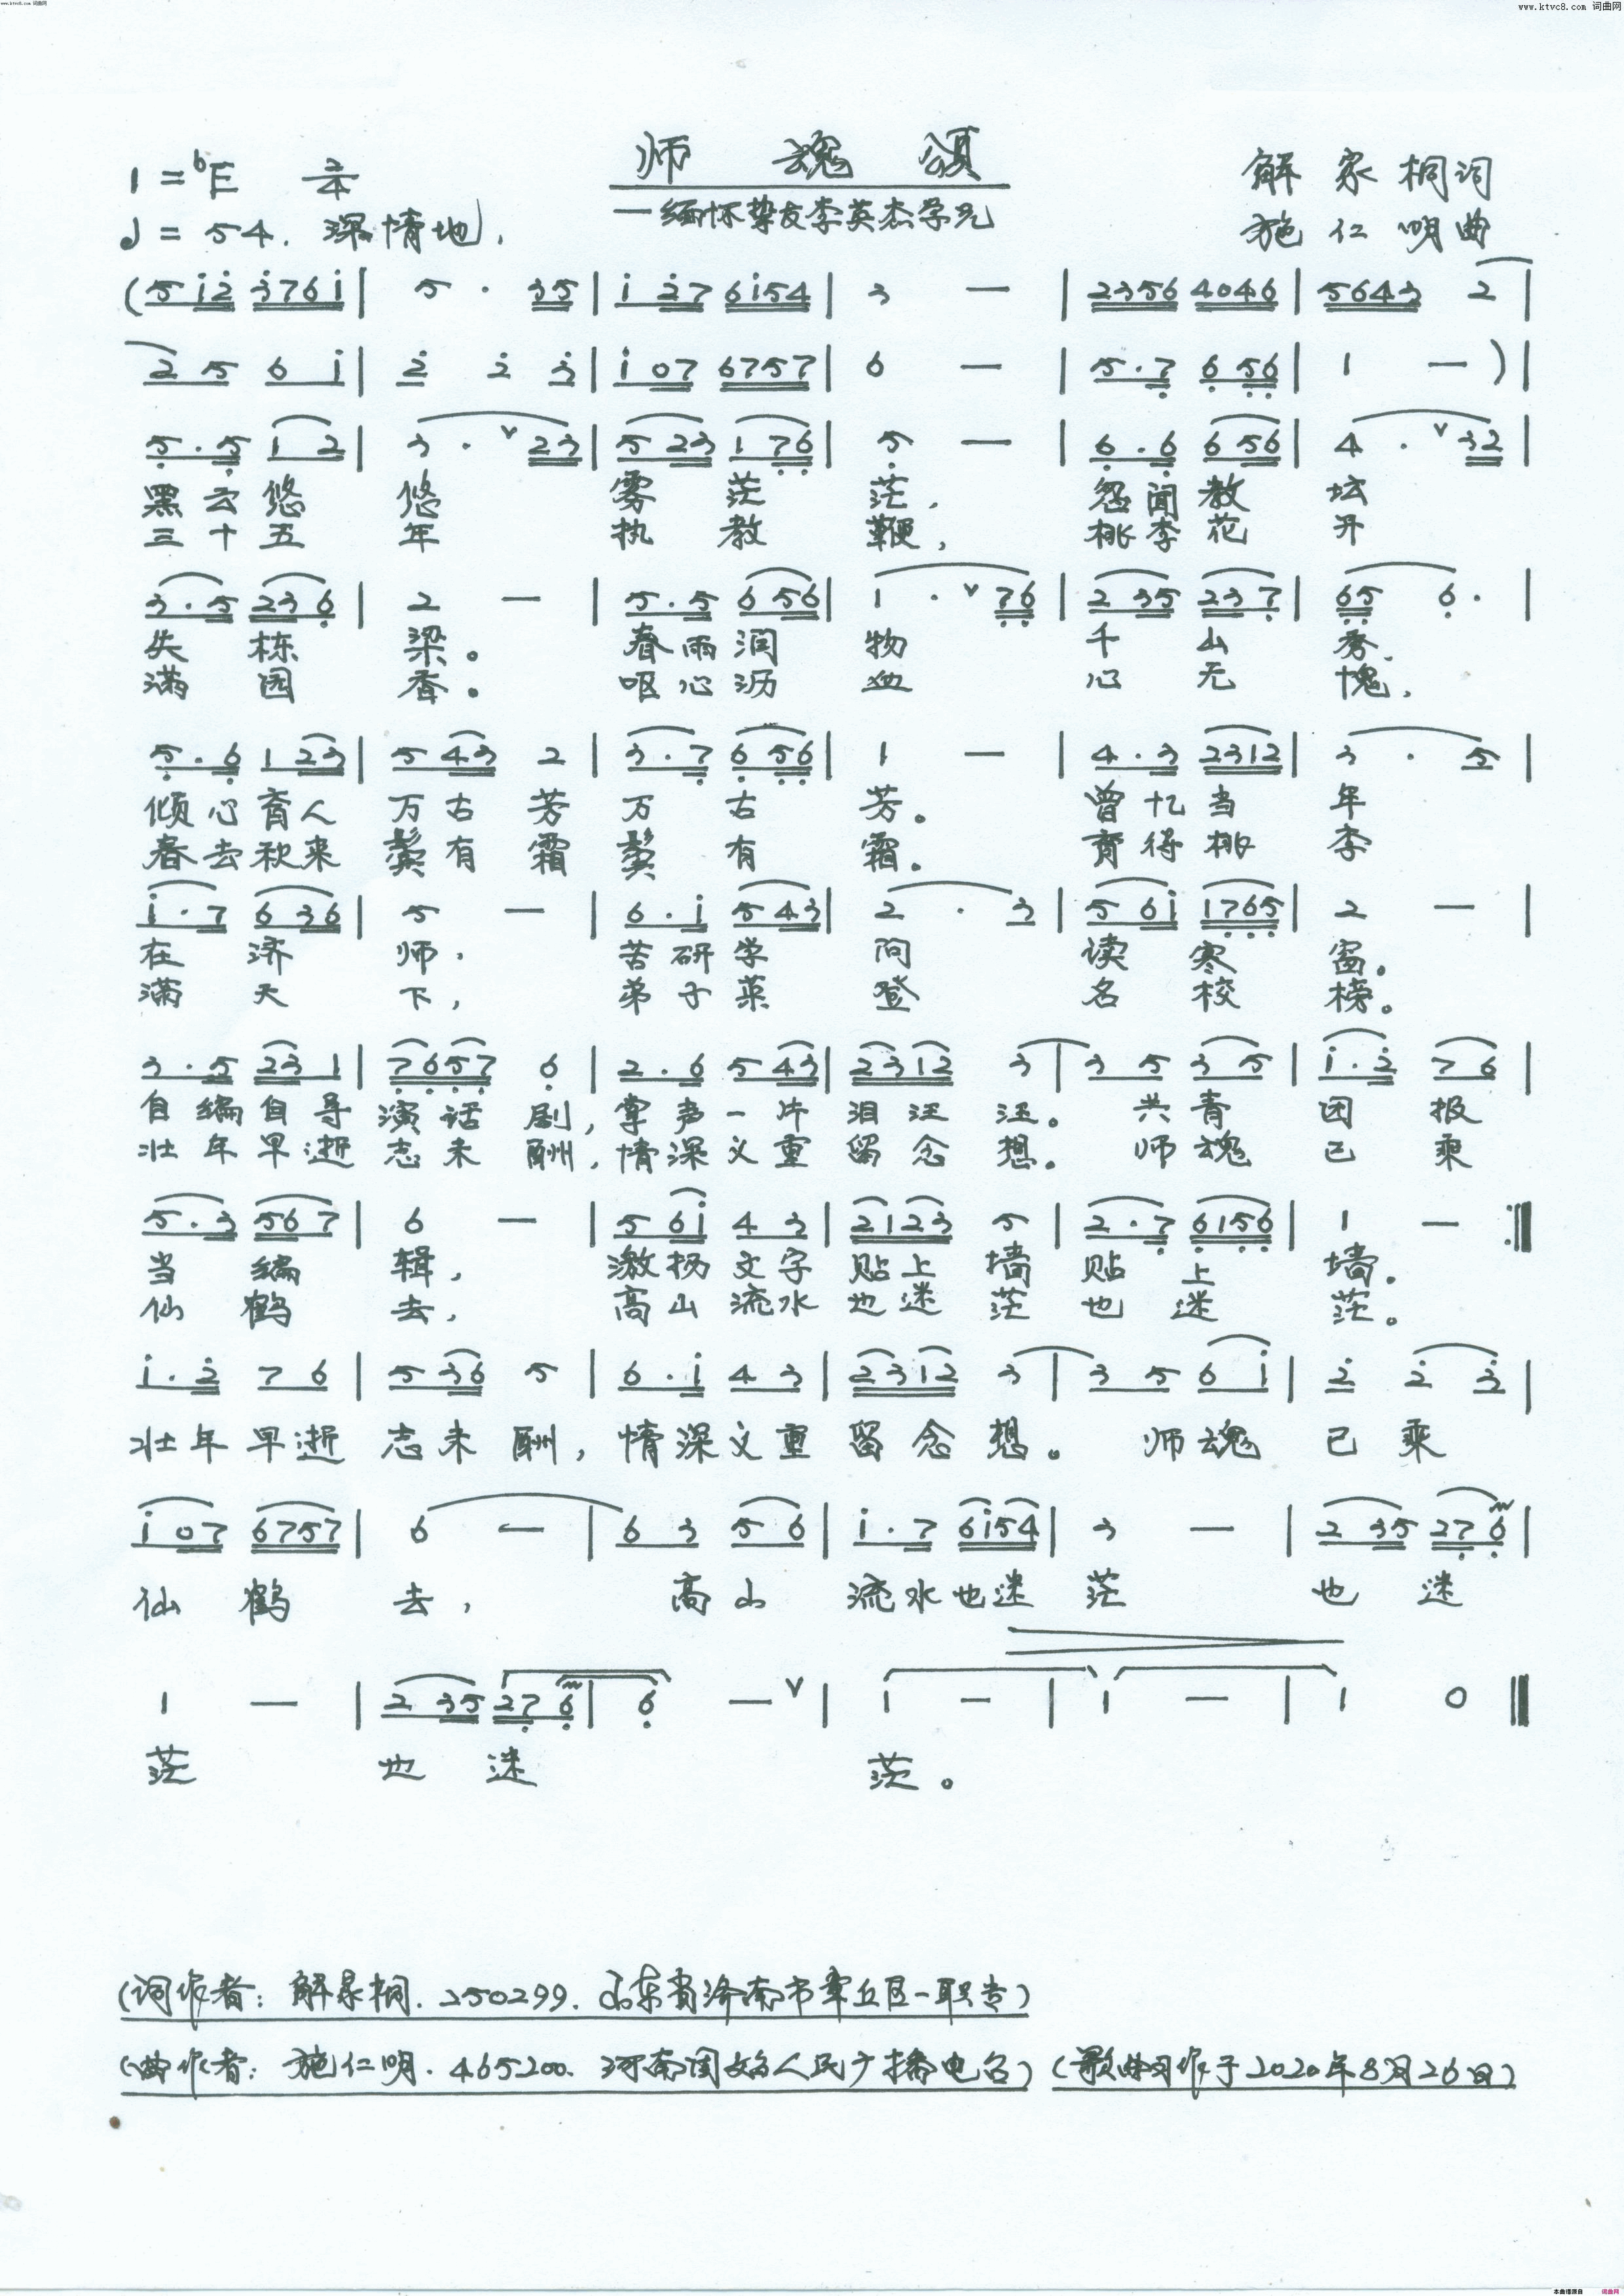 www.ktvc8.com 词曲网
www.ktvc8.com 词曲网
师 魂 颂
1=bE 2/4
解 家 桐 词
——缅怀挚友李英杰学兄
♩=54. 深情地.
施 仁 明 曲
(5i2 3761 | 5 · 35 | i 27 6i54 | 3 — | 2356 4046 | 5643 2 |
2 5 6 i | 2 2 3 | i 07 6757 | 6 — | 5·7 6 56 | 1 — ) |
5·5 1 2 | 3 · ∨ 23 | 5 23 1 76 | 5 — | 6·6 6 56 | 4 · ∨ 32 |
黑 云 悠 悠 雾 茫 茫, 怨 闻 教 坛
三 十 五 年 执 教 鞭, 桃 李 花 开
3·5 23 6 | 2 — | 5·5 6 56 | 1 · ∨ 76 | 2 35 23 7 | 65 6· |
失 栋 梁。 春 雨 润 物 千 山 秀、
满 园 香。 呕 心 沥 血 心 无 愧,
5·6 1 23 | 5 43 2 | 3·7 6 56 | 1 — | 4·3 2312 | 3 · 5 |
倾 心 育 人 万 古 芳 万 古 芳。 曾 忆 当 年
春 去 秋 来 鬓 有 霜 鬓 有 霜。 育 得 桃 李
i·7 6 36 | 5 — | 6·i 5 43 | 2 · 3 | 5 6i 1765 | 2 — |
在 济 师. 苦 研 学 问 读 寒 窗。
满 天 下, 弟 子 菜 登 名 校 榜。
3·5 23 1 | 7657 6 | 2·6 5 43 | 2312 3 | 3 5 3 5 | i·2 7 6 |
自 编 自 导 演 话 剧, 掌 声 一 片 泪 汪 汪。 共 青 团 报
壮 年 早 逝 志 未 酬, 情 深 义 重 留 念 想。 师 魂 已 乘
5·3 56 7 | 6 — | 5 6i 4 3 | 2123 5 | 2·7 6156 | 1 — :‖
当 编 辑, 激 扬 文 字 贴 上 墙 贴 上 墙.
仙 鹤 去, 高 山 流 水 也 迷 茫 也 迷 茫。
i·2 7 6 | 5 36 5 | 6·i 4 3 | 2312 3 | 3 5 6 i | 2 2 3 |
壮 年 早 逝 志 未 酬, 情 深 义 重 留 念 想。 师 魂 已 乘
i 07 6757 | 6 — | 6 3 5 6 | i·7 6i54 | 3 — | 2 35 27 6 |
仙 鹤 去, 高 山 流 水 也 迷 茫 也 迷
1 — | 2 35 27 6 | 6 — ∨ | i — | i — | i 0 ‖
茫 也 迷 茫。
(词作者: 解家桐. 250299. 山东省济南市章丘区一职专)
(曲作者: 施仁明. 465200. 河南固始人民广播电台) (歌曲写作于2020年8月26日)
本曲谱源自 词曲网